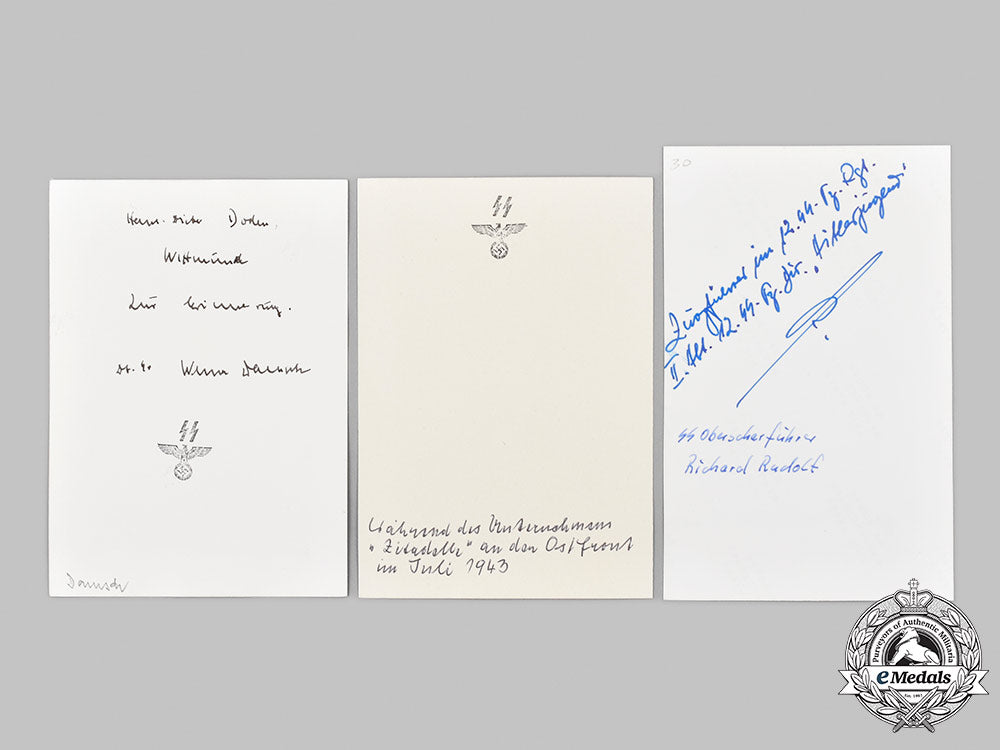 Doden,
Wittmund
Zur Erinnerung.
Werner Damsch
Damsch
Während des Unternehmens
„Zitadelle“ an der Ostfront
im Juli 1943
30
Zugführer im 12. SS-Pz. Rgt.
II. Abt. 12. SS-Pz. Div. „Hitlerjugend“
SS Oberscharführer
Richard Rudolf
Purveyors of Authentic Militaria
eMedals